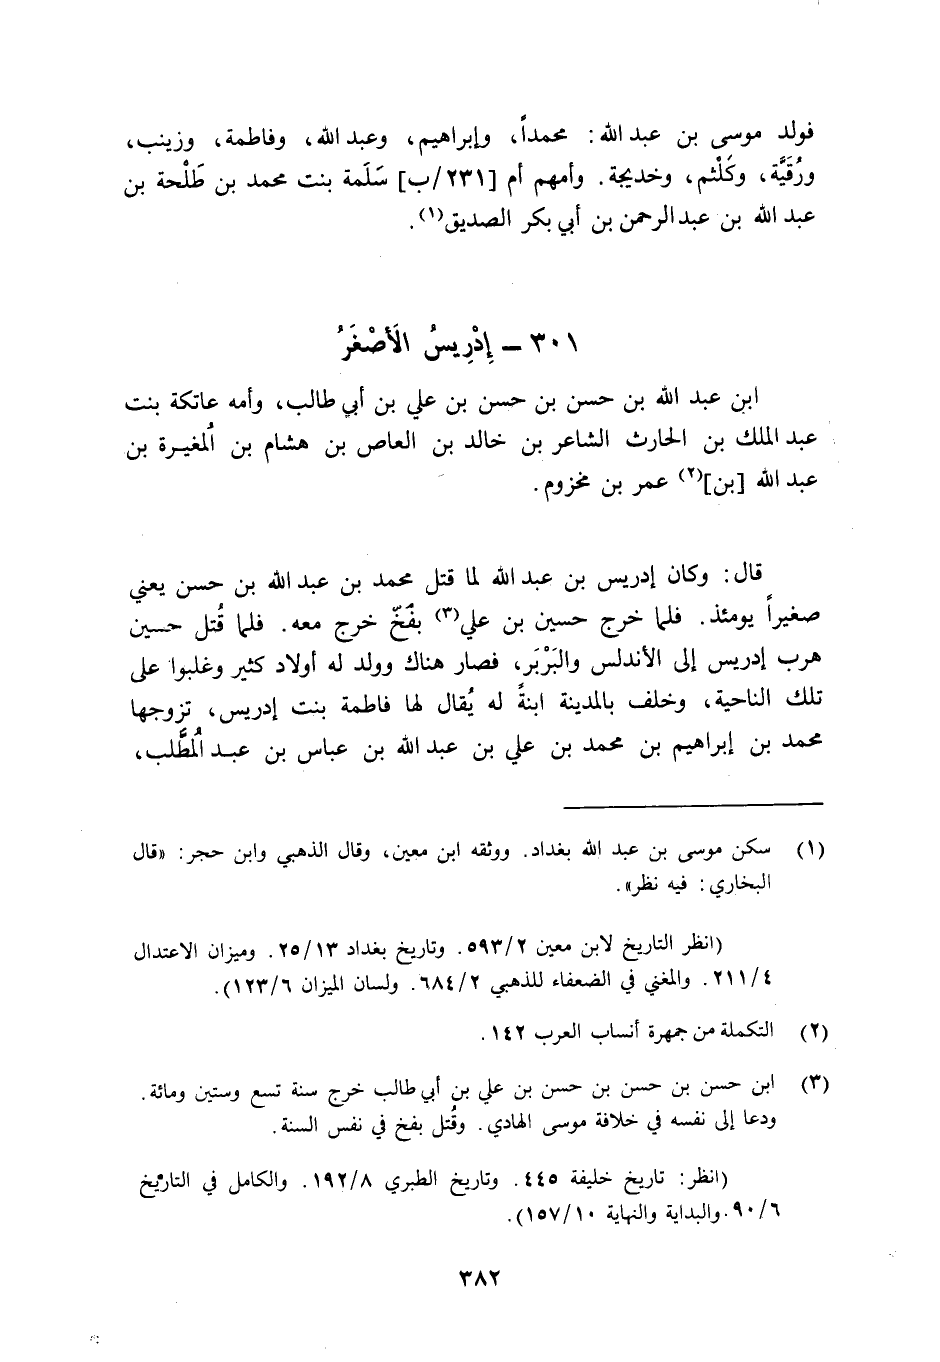 فولد موسى بن عبد الله : محمداً، وإبراهيم، وعبد الله، وفاطمة، وزينب،
ورُقَيَّة، وكَلْثم، وخديجة. وأمهم أم [٢٣١/ب] سَلَمة بنت محمد بن طَلْحة بن
عبد الله بن عبد الرحمن بن أبي بكر الصديق(١).
٣٠١ ـ إِدْرِيسُ الأَصْغَرُ
ابن عبد الله بن حسن بن حسن بن علي بن أبي طالب، وأمه عاتكة بنت
عبد الملك بن الحارث الشاعر بن خالد بن العاص بن هشام بن المُغيرة بن
عبد الله [بن](٢) عمر بن مخزوم.
قال: وكان إدريس بن عبد الله لما قتل محمد بن عبد الله بن حسن يعني
صغيراً يومئذ. فلما خرج حسين بن علي(٣) بفَخّ خرج معه. فلما قُتل حسين
هرب إدريس إلى الأندلس والبَرْبَر، فصار هناك وولد له أولاد كثير وغلبوا على
تلك الناحية، وخلف بالمدينة ابنةً له يُقال لها فاطمة بنت إدريس، تزوجها
محمد بن إبراهيم بن محمد بن علي بن عبد الله بن عباس بن عبد المُطَّلب،
(١) سكن موسى بن عبد الله بغداد. ووثقه ابن معين، وقال الذهبي وابن حجر: «قال
البخاري: فيه نظر».
(انظر التاريخ لابن معين ٥٩٣/٢. وتاريخ بغداد ٢٥/١٣. وميزان الاعتدال
٢١١/٤. والمغني في الضعفاء للذهبي ٦٨٤/٢. ولسان الميزان ١٢٣/٦).
(٢) التكملة من جمهرة أنساب العرب ١٤٢.
(٣) ابن حسن بن حسن بن حسن بن علي بن أبي طالب خرج سنة تسع وستين ومائة.
ودعا إلى نفسه في خلافة موسى الهادي. وقُتل بفخ في نفس السنة.
(انظر: تاريخ خليفة ٤٤٥. وتاريخ الطبري ١٩٢/٨. والكامل في التاريخ
٩٠/٦. والبداية والنهاية ١٥٧/١٠).
٣٨٢